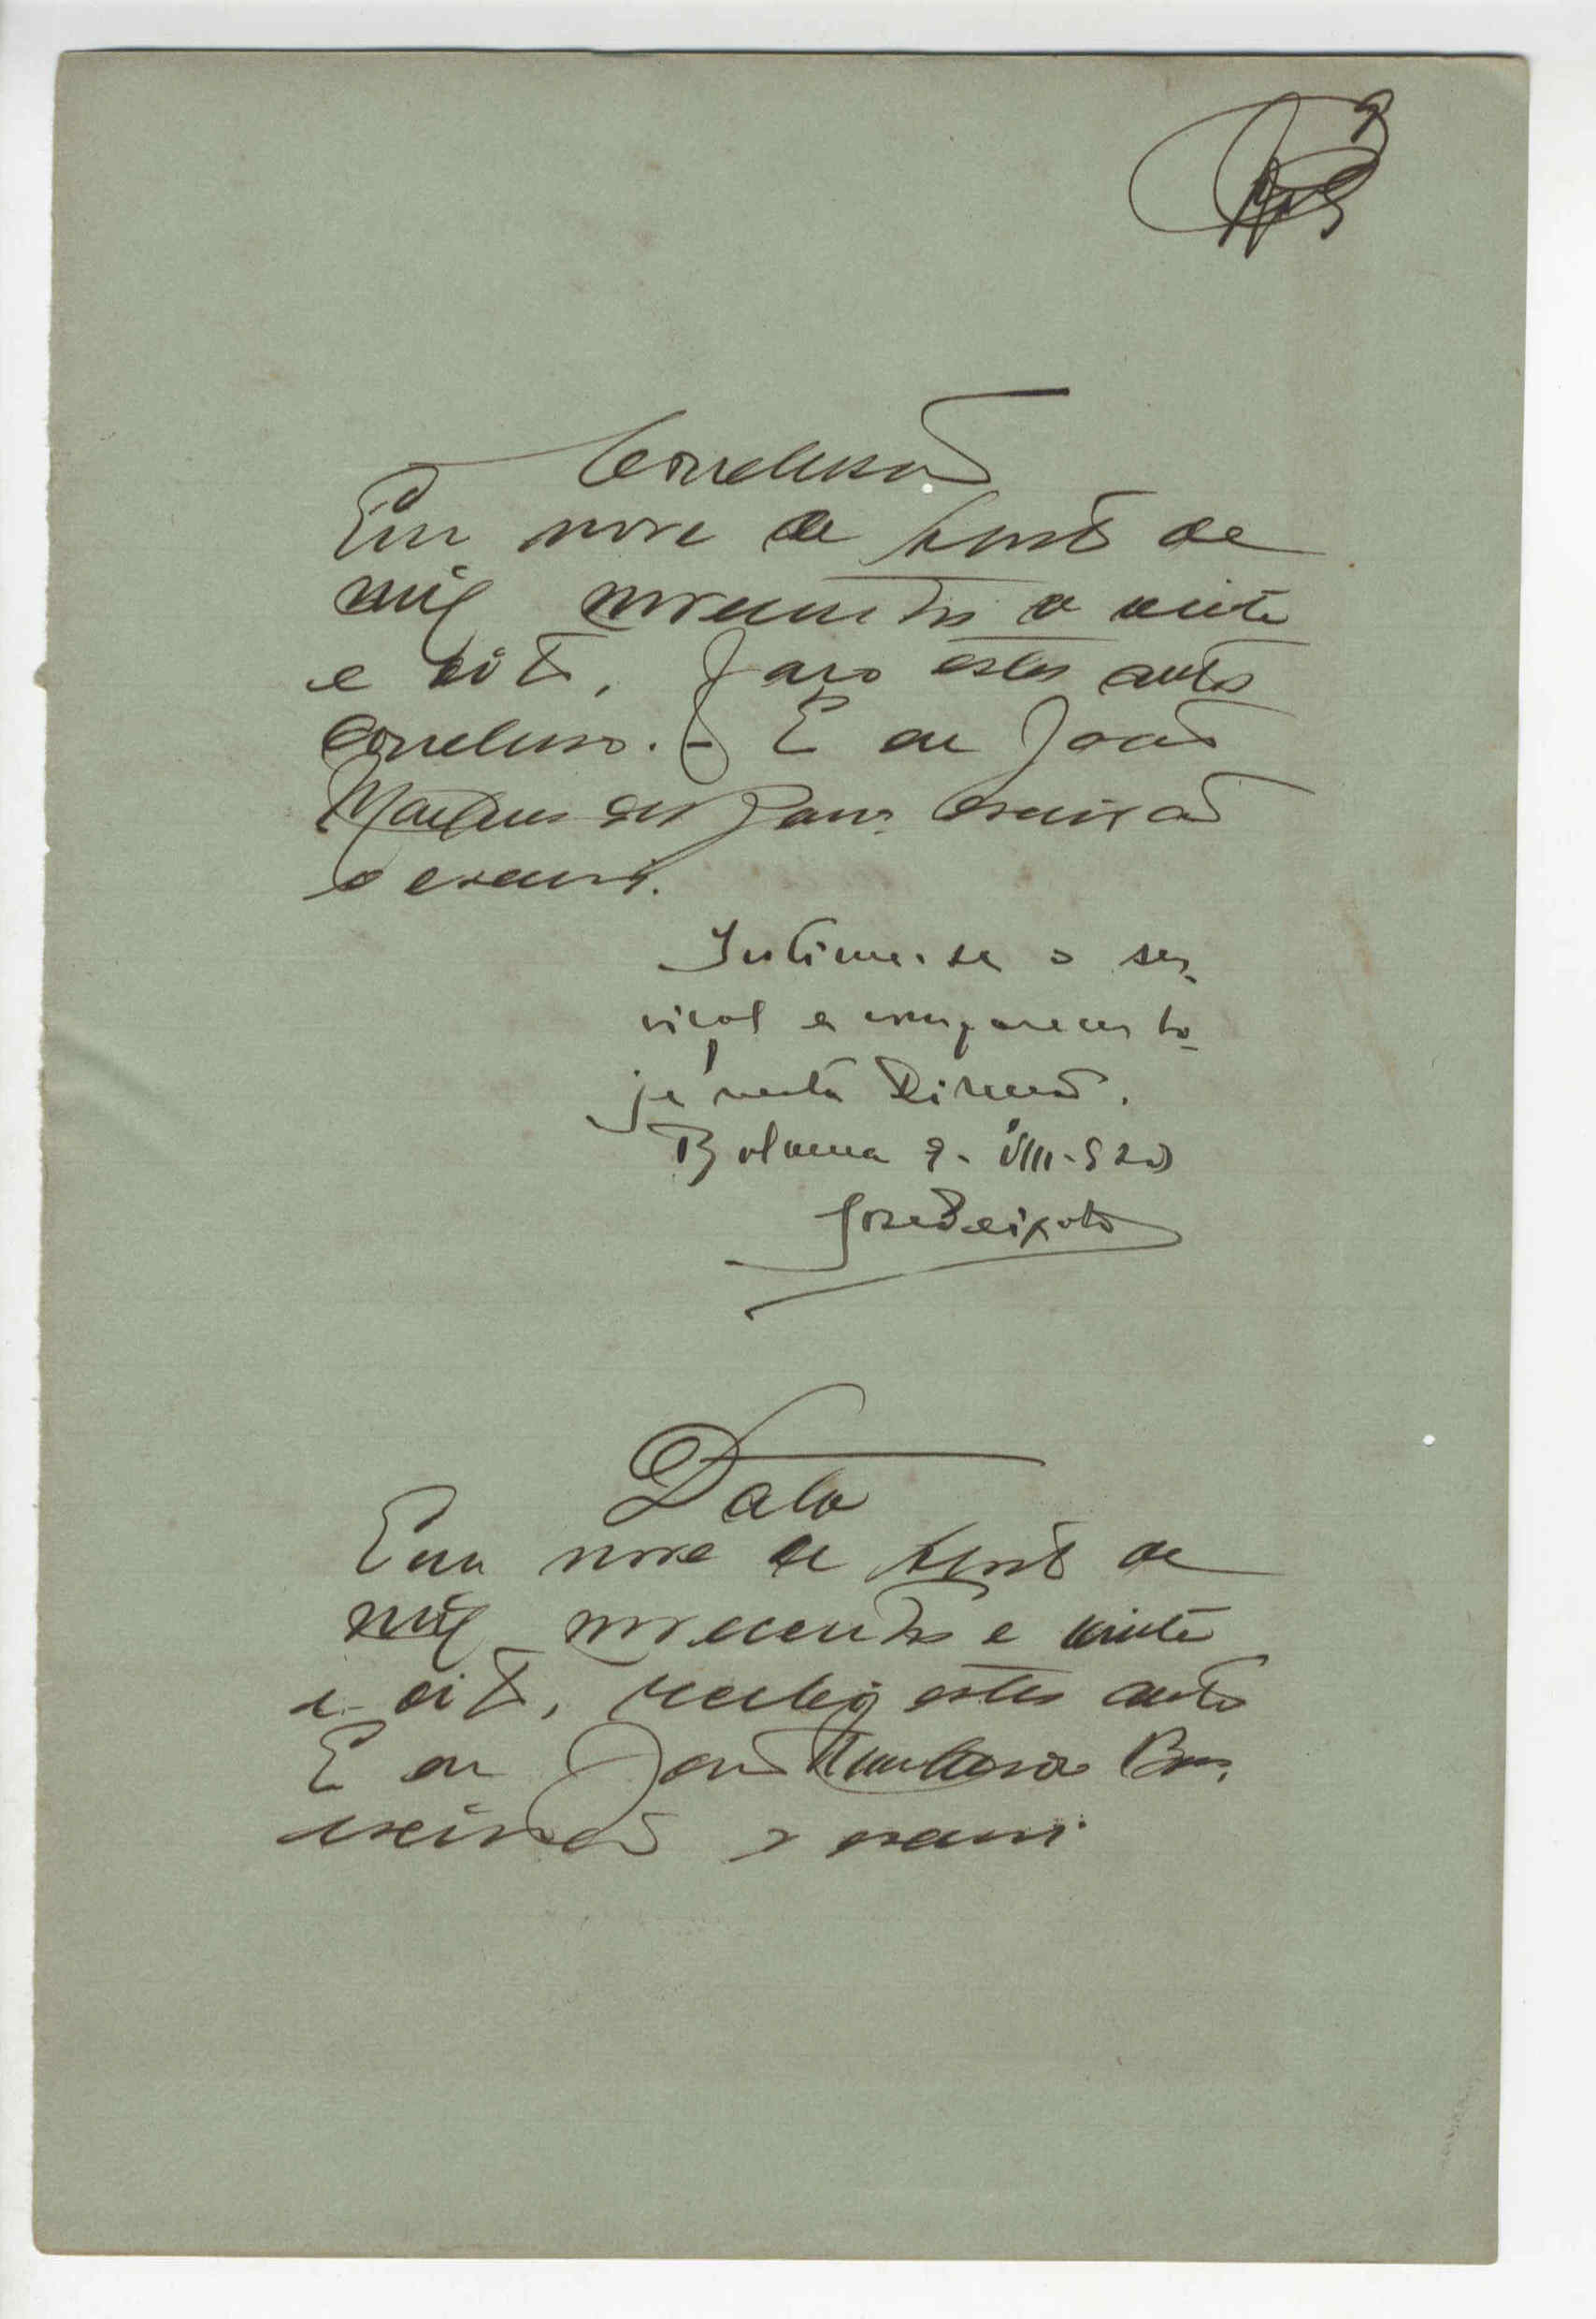 Conclusão
Em nove de Agosto de
mil novecentos e vinte
e oito, faço estes autos
conclusos. - E eu João
escrivão
o escrevi.
Intime-se o ser-
viçal a comparecer ho-
je nesta Direcção.
Bolama 9-VIII-928
José Peixoto
Data
Em nove de Agosto de
mil novecentos e vinte
e oito, recebi estes autos
E eu João
escrivão o escrevi